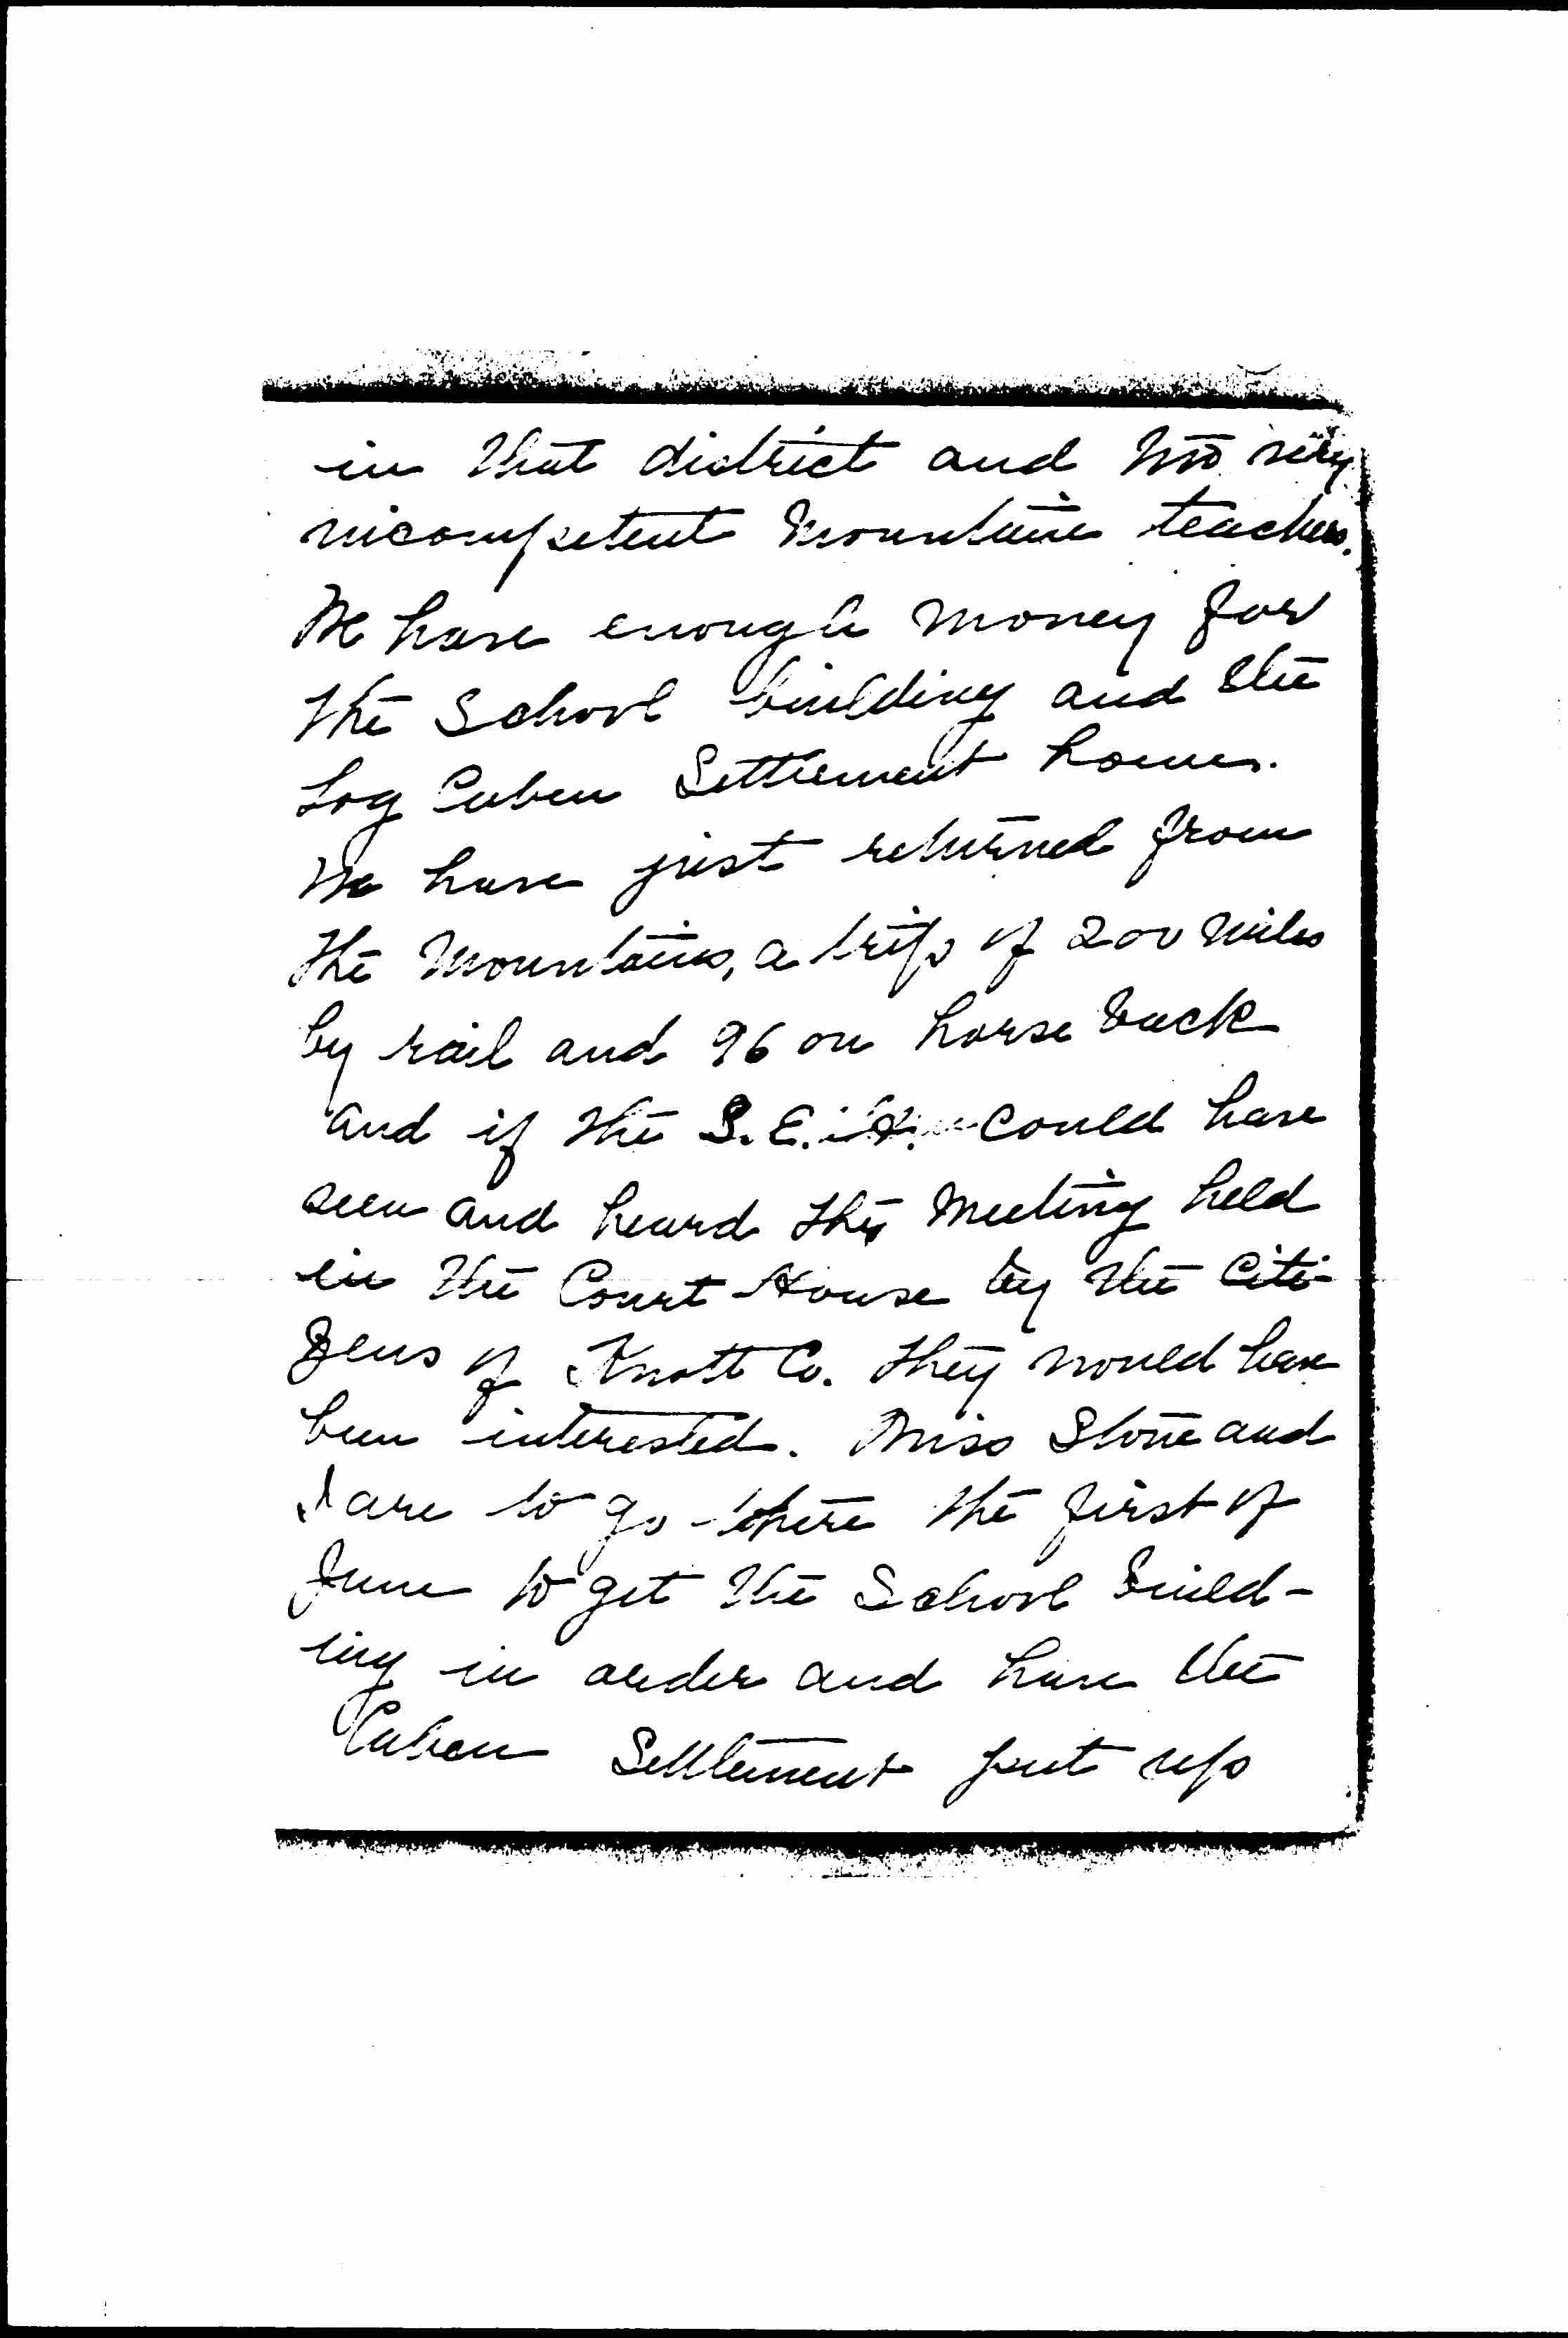 in that district and two very
incompetent Mountain teachers.
We have enough money for
the School building and the
Log Caben Settlement home.
We have just returned from
the Mountains, a trip of 200 miles
by rail and 96 on horse back
and if the S. E. A. could have
seen and heard the Meeting held
in the Court House by the Citi-
zens of Knott Co. they would have
been interested. Miss Stone and
I are to go there the first of
June to get the School build-
ing in order and have the
Caben Settlement put up